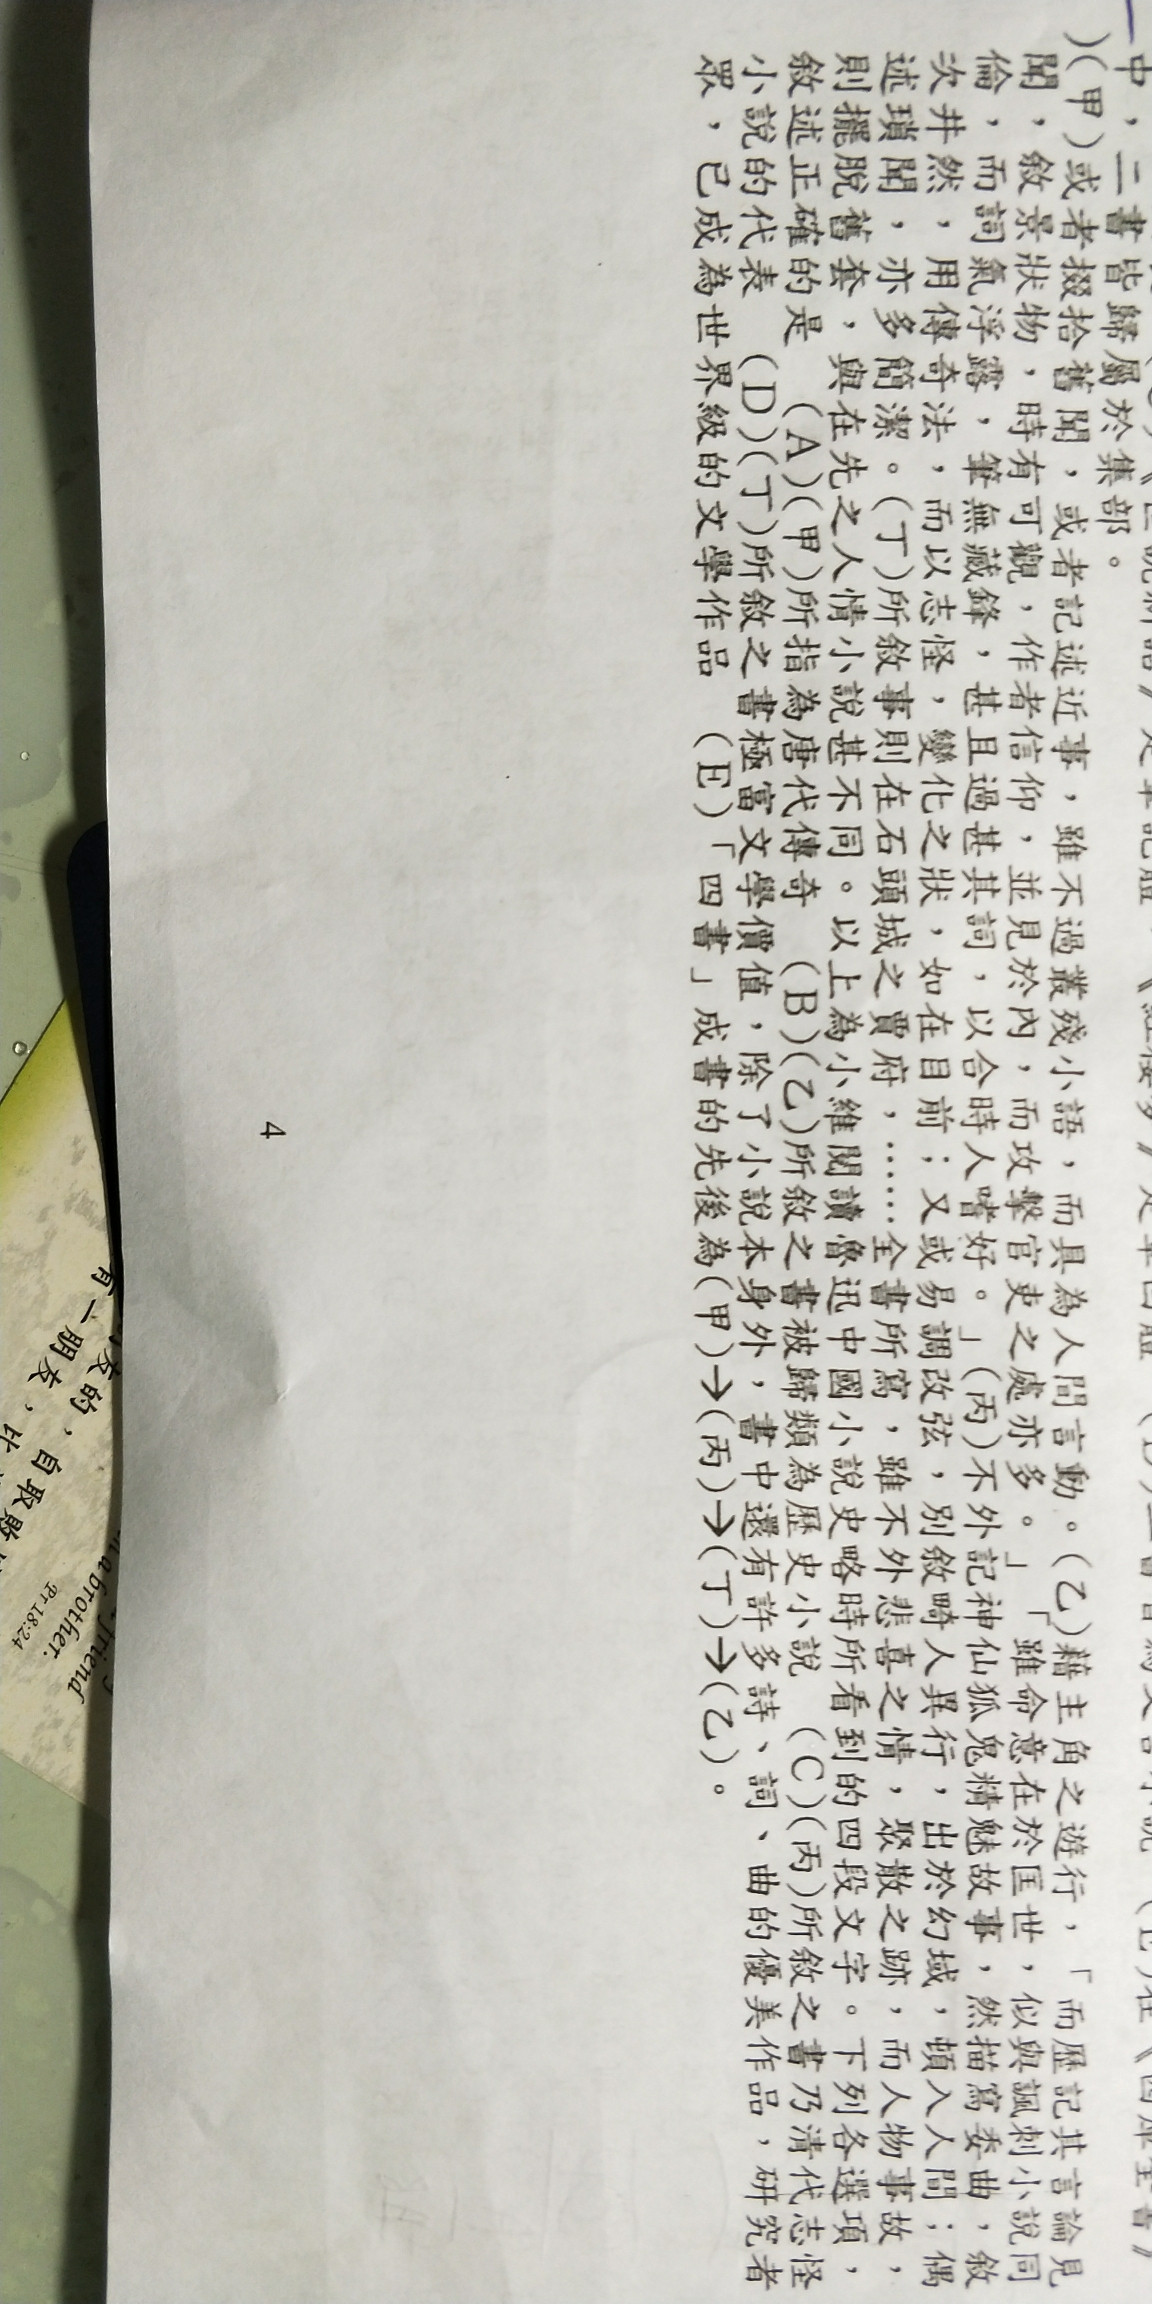 中，二書皆歸屬於集部。
)(甲)或者掇拾舊聞，或者記述近事，雖不過叢殘小語，而具為人間言動。(乙)藉主角之遊行，「而歷記其言論見
聞，敘景狀物，時有可觀，作者信仰，並見於內，而攻擊官吏之處亦多。」「雖命意在於匡世，似與諷刺小說同
倫，而詞氣浮露，筆無藏鋒，甚且過甚其詞，以合時人嗜好。」(丙)不外記神仙狐鬼精魅故事，然描寫委曲，敘
次井然，用傳奇法，而以志怪，變化之狀，如在目前；又或易調改弦，別敘畸人異行，出於幻域，頓入人間；偶
述瑣聞，亦多簡潔。(丁)所敘事則在石頭城之賈府，……全書所寫，雖不外悲喜之情，聚散之跡，而人物事故，
則擺脫舊套，與在先之人情小說甚不同。以上為小維閱讀魯迅中國小說史略時所看到的四段文字。下列各選項，
敘述正確的是 (A)(甲)所指為唐代傳奇 (B)(乙)所敘之書被歸類為歷史小說 (C)(丙)所敘之書乃清代志怪
小說的代表 (D)(丁)所敘之書極富文學價值，除了小說本身外，書中還有許多詩、詞、曲的優美作品，研究者
眾，已成為世界級的文學作品 (E)「四書」成書的先後為(甲)→(丙)→(丁)→(乙)。
4
友的，自取
有一朋友，比
friend
a brother.
Pr 18:24